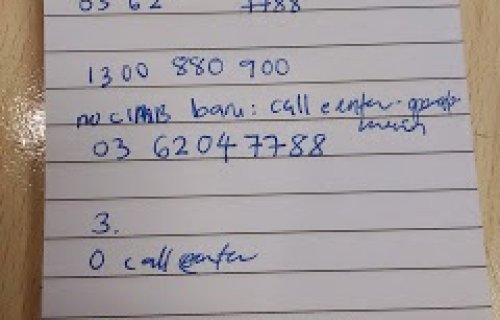 03 62 7788
1300 880 900
no CIMB baru: call center -
03 6204 7788
3.
0 call center